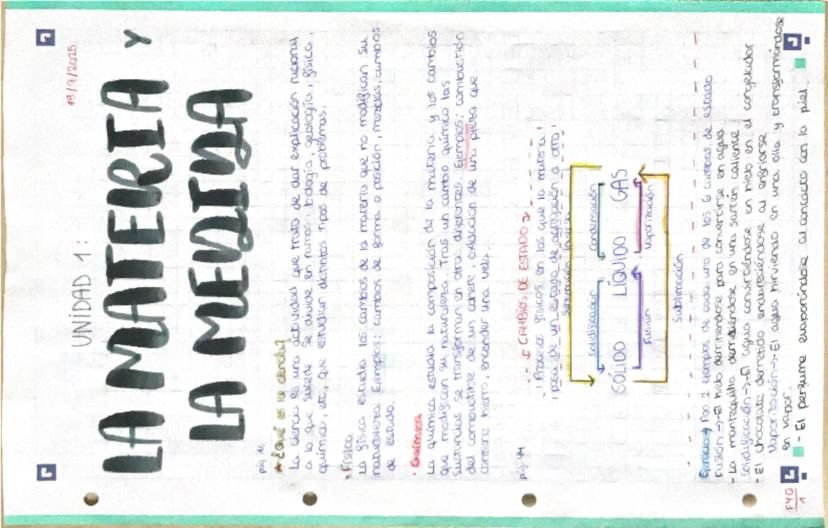 18/9/2025
UNIDAD 1:
LA MATERIA Y
LA MEDIDA
pág 10
★ ¿Qué es la ciencia?
La ciencia es una actividad que trata de dar explicación racional
a lo que sucede. Se divide en ramas: biología, geología, física,
química, etc, que estudian distintos tipos de problemas.
· Física
La física estudia los cambios de la materia que no modifican su
naturaleza. Ejemplos: cambios de forma o posición, mezclas, cambios
de estado.
· Química
La química estudia la composición de la materia y los cambios
que modifican su naturaleza. Tras un cambio químico las
sustancias se transforman en otras diferentes. Ejemplos: combustión
del combustible de un cohete, oxidación de una pieza que
contiene hierro, encender una vela.
pág 11
CAMBIOS DE ESTADO
Procesos físicos en los que la materia
pasa de un estado de agregación a otro.
Sublimación inversa
Solidificación Condensación
SÓLIDO LÍQUIDO GAS
Fusión Vaporización
Sublimación
Pon 2 ejemplos de cada uno de los 6 cambios de estado
Fusión → El hielo derritiéndose para convertirse en agua
- La mantequilla derritiéndose en una sartén caliente
Solidificación → El agua convirtiéndose en hielo en el congelador
- El chocolate derretido endureciéndose al enfriarse
Vaporización → El agua hirviendo en una olla y transformándose
en vapor.
- El perfume evaporándose al contacto con la piel.
FYQ
1